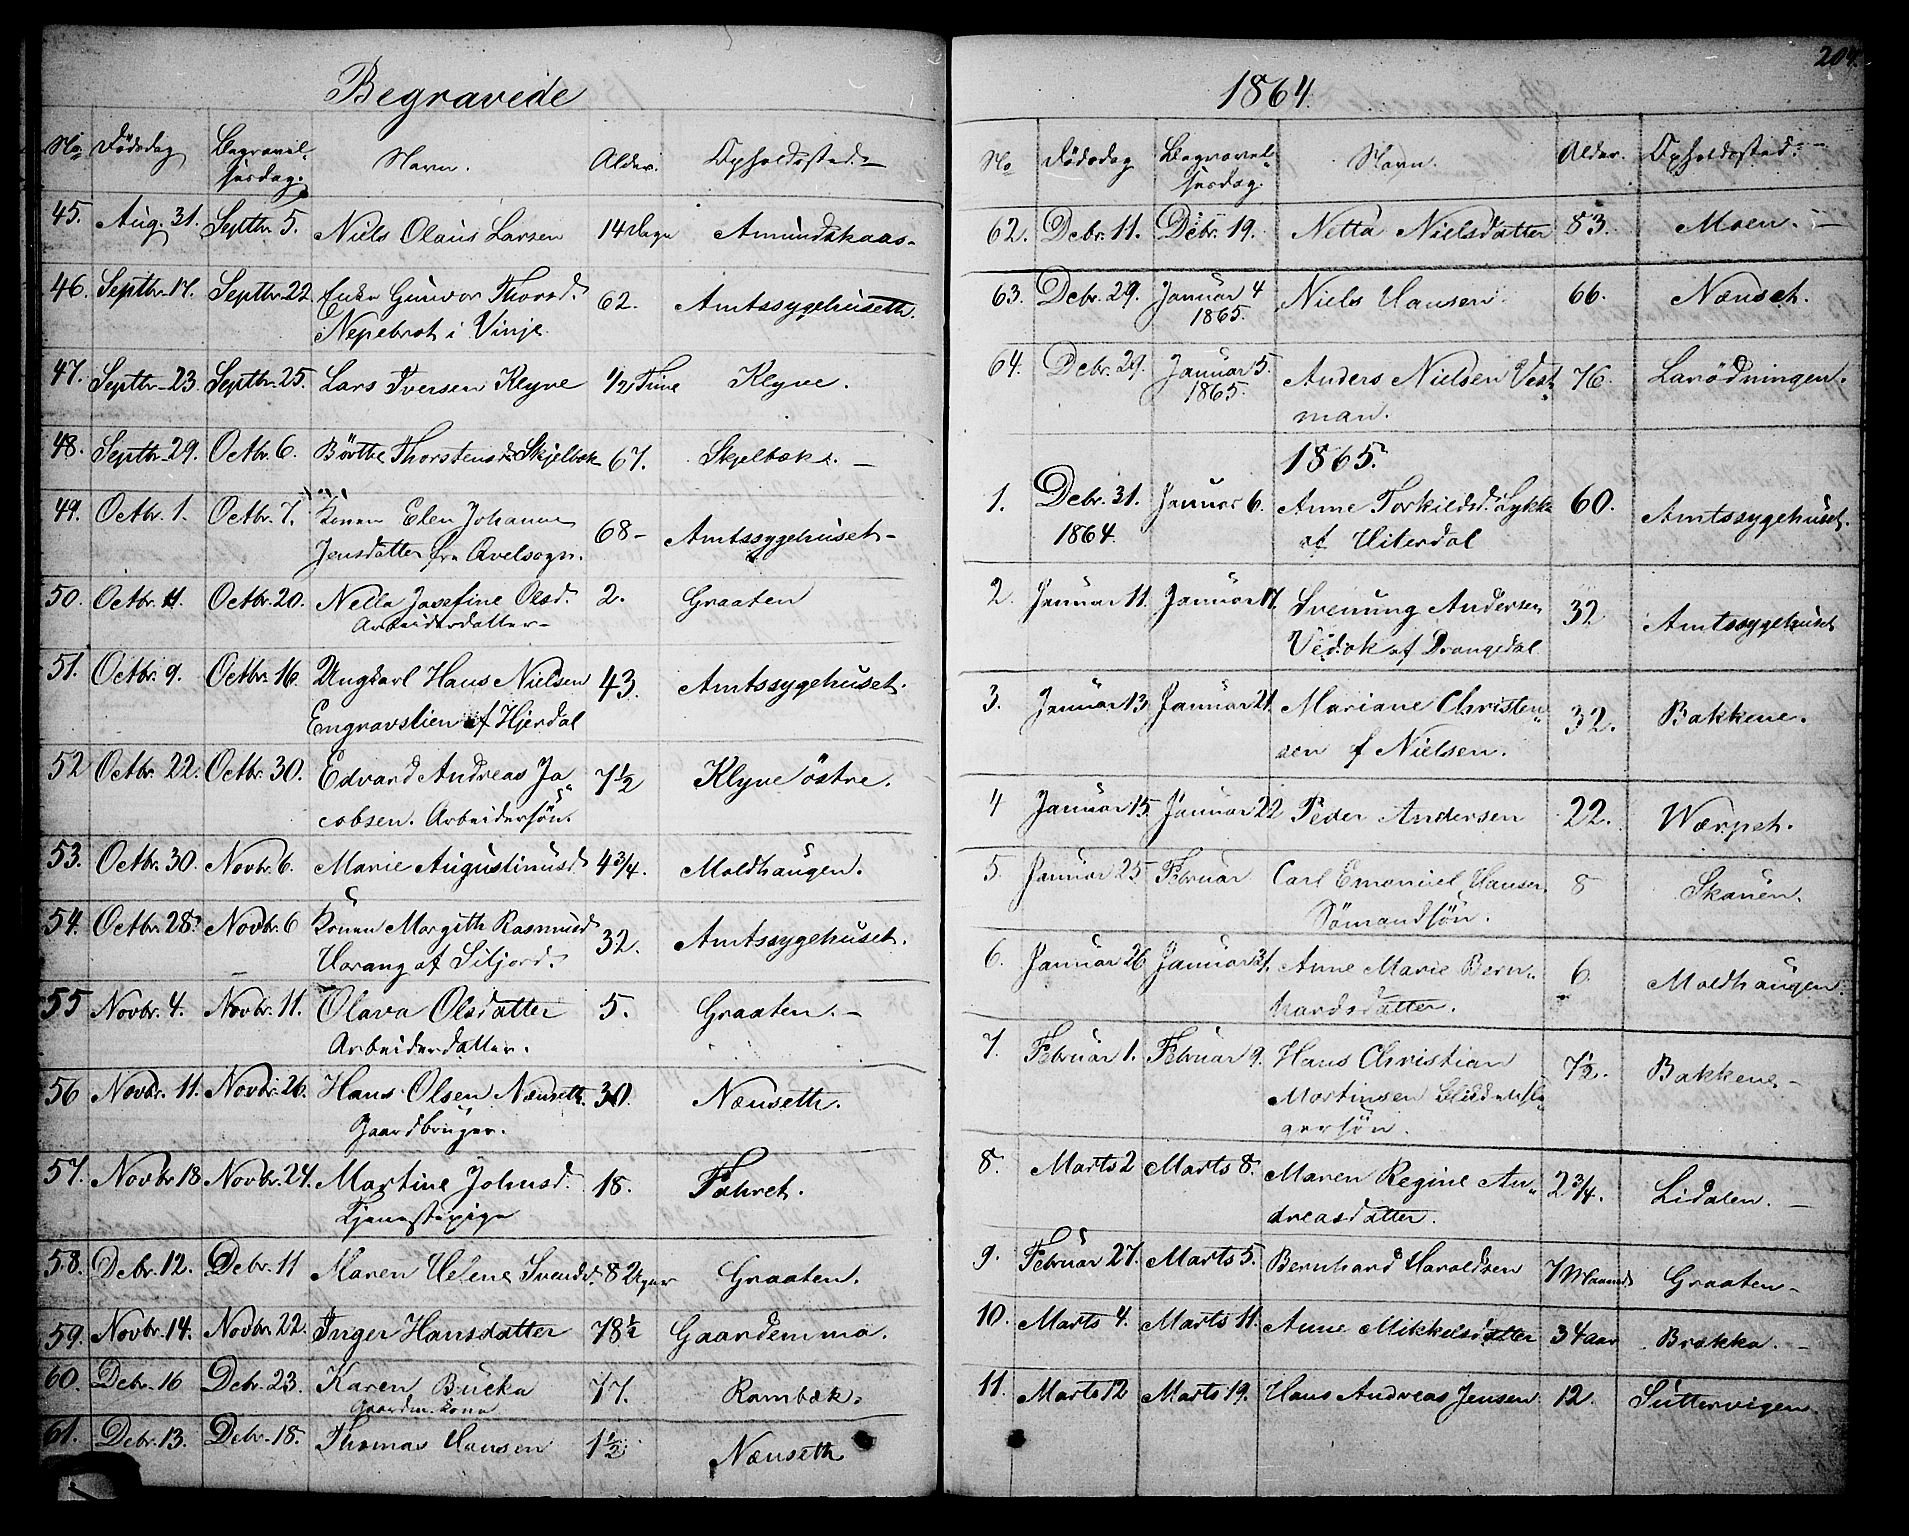 Begravede
No Dødsdag Begravelsesdag. Navn. Alder. Opholdssted.
45. Aug. 31. Septbr. 5. Niels Olaus Larsen 14 Dage Amundskaas.
46. Septbr. 17. Septbr. 22 Enke Gunvor Thorsd. 62. Amtssygehuseth.
Nepebrot i Vinje.
47. Septbr. 23. Septbr. 25. Lars Iversen Klyve 1/2 Time Klyve.
48. Septbr. 29. Octbr. 6. Börthe Thorstensd. Skjelbæk 67. Skjelbæk.
49. Octbr. 1. Octbr. 7. Konen Elen Johanne 68 Amtssygehuset
Jensdatter fra
50. Octbr. 11. Octbr. 20. Nella Josefine Olsd. 2. Graaten
Arbeiderdatter
51. Octbr. 9. Octbr. 16. Ungkarl Hans Nielsen 43. Amtssygehuset.
Engravslien af Hjerdal
52 Octbr. 22. Octbr. 30. Edvard Andreas Ja 7 1/2 Klyve östre.
cobsen. Arbeidersön.
53. Octbr. 30. Novbr. 6. Marie Augustinusd. 4 3/4. Moldhaugen.
54. Octbr. 28. Novbr. 6 Konen Margith Rasmusd. 32. Amtssygehuset.
af Siljord.
55 Novbr. 4. Novbr. 11. Olava Olsdatter 5. Graaten.
Arbeiderdatter.
56 Novbr. 11. Novbr. 26. Hans Olsen Nænseth. 30. Nænseth.
Gaardbruger.
57. Novbr 18 Novbr. 24. Martine Johnsd. 18. Fahret.
Tjenestepige
58. Debr. 12. Debr. 11 Maren Helene Svendsd. 8 Uger Graaten.
59. Novbr. 14. Novbr. 22. Inger Hansdatter 78 1/2 Gaardemmo.
60. Debr. 16 Debr. 23. Karen Bucka 77. Rambæk.
Gaardm. Kone
61. Debr. 13. Debr. 18. Thomas Hansen 1 1/2 Nænseth
204.
1864.
No Dødsdag Begravelsesdag. Navn. Alder. Opholdssted.
62. Debr. 11. Debr. 19. Netta Nielsdatter 83. Moen.
63. Debr. 29. Januar 4 Niels Hansen. 66. Nænset.
1865.
64. Debr. 29. Januar 5. Anders Nielsen Vest 76. Larödningen.
1865. man.
1865.
1. Debr. 31. Januar 6. Anne Torkildsd. Lykk 60. Amtssygehuset.
1864. af Hiterdal
2. Januar 11. Januar 17. Svenung Andersen 32 Amtssygehuset
af Drangedal
3. Januar 13. Januar 21. Mariane Christen 32. Bakkene.
sen f Nielsen.
4 Januar 15. Januar 22 Peder Andersen 22. Wærpet.
5. Januar 25. Februar Carl Emanuel Hansen 8 Skauen.
Sömandsön.
6. Januar 26 Januar 31. Anne Marie Bern 6. Moldhaugen.
hardsdatter.
7. Februar 1. Februar 9. Hans Christian 7 1/2. Bakkene
Martinsen
gersön.
8. Marts 2 Marts 8. Maren Regine An 2 3/4. Lidalen.
dreasdatter.
9. Februar 27. Marts 5. Bernhard Haroldsen 7 Maaneds Graaten
10. Marts 4. Marts 11. Anne Mikkelsdatter 34 aar Brækka.
11. Marts 12 Marts 19. Hans Andreas Jensen 12. Suttervigen.